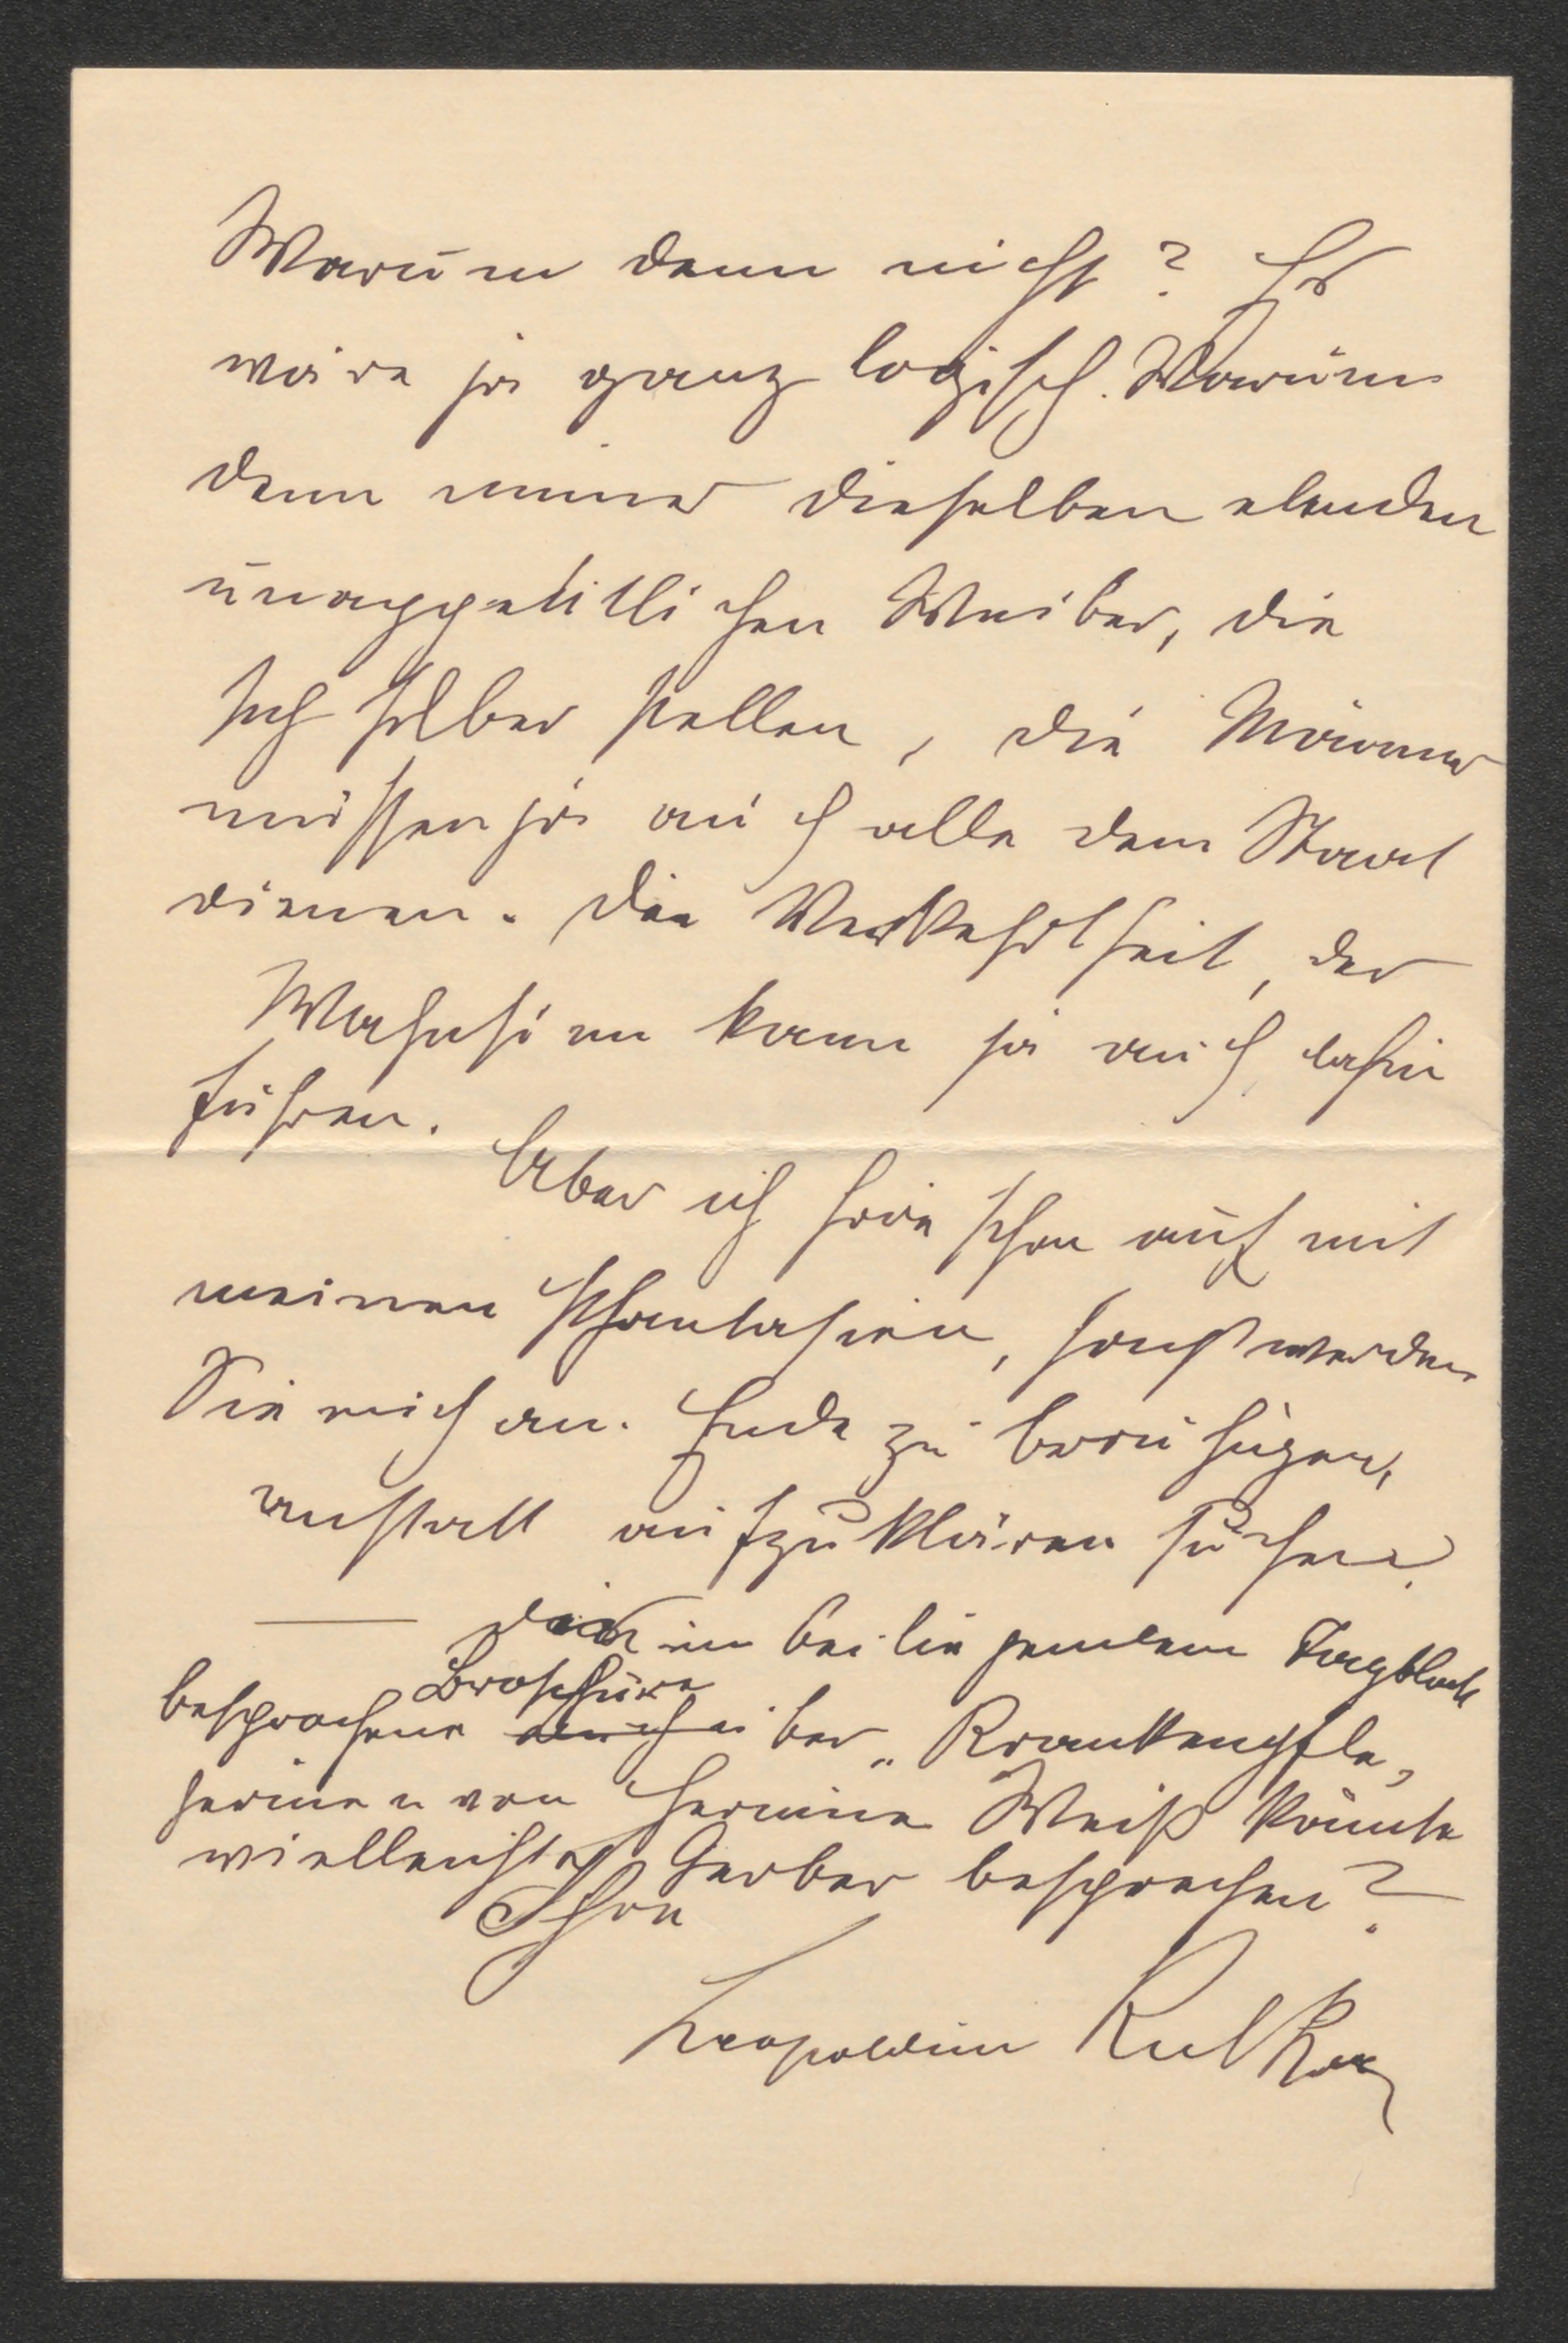 Warum denn nicht? Es
wäre ja ganz logisch. Warum
denn immer dieselben elenden
unappetitlichen Weiber, die
sich selber stellen, die Männer
müssen ja auch alle dem Staat
dienen. Die Verkehrtheit, der
Wahnsinn kann ja auch dahin
führen.
Aber ich höre schon auf mit
meinen Phantasien, sonst werden
Sie mich am Ende zu beruhigen,
anstatt aufzuklären suchen.
— Die im beiliegendem Tagblatt
besprochene Broschüre über „Krankenpfle-
gerinen von Hermine Weiß könnte
vielleicht Gerber besprechen?
Ihre
Leopoldine Kulka